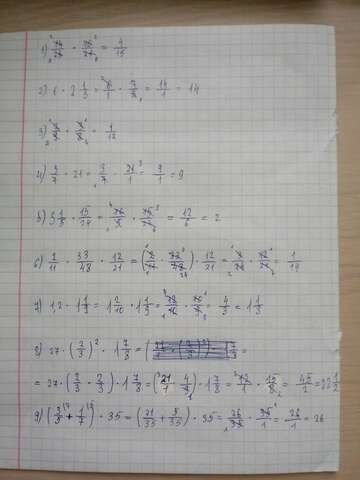 1) 14/25 · 10/21 = 4/15
2) 6 · 2 1/3 = 6/1 · 7/3 = 14/1 = 14
3) · = 1/12
4) 3/7 · 21 = 3/7 · 21/1 = 9/1 = 9
5) 3 1/5 · 15/24 = 16/5 · 15/24 = 12/6 = 2
6) 2/11 · 33/48 · 12/21 = ( · ) · 12/21 = · = 1/14
7) 1,2 · 1 1/9 = 1 2/10 · 1 1/9 = 12/10 · 10/9 = 4/3 = 1 1/3
8) 27 · (2/3)² · 1 7/8 = =
= 27 · (2/3 · 2/3) · 1 7/8 = (27/1 · 4/9) · 1 7/8 = 12/1 · 15/8 = 45/2 = 22 1/2
9) (3/5 + 1/7) · 35 = (21/35 + 5/35) · 35 = 26/35 · 35/1 = 26/1 = 26